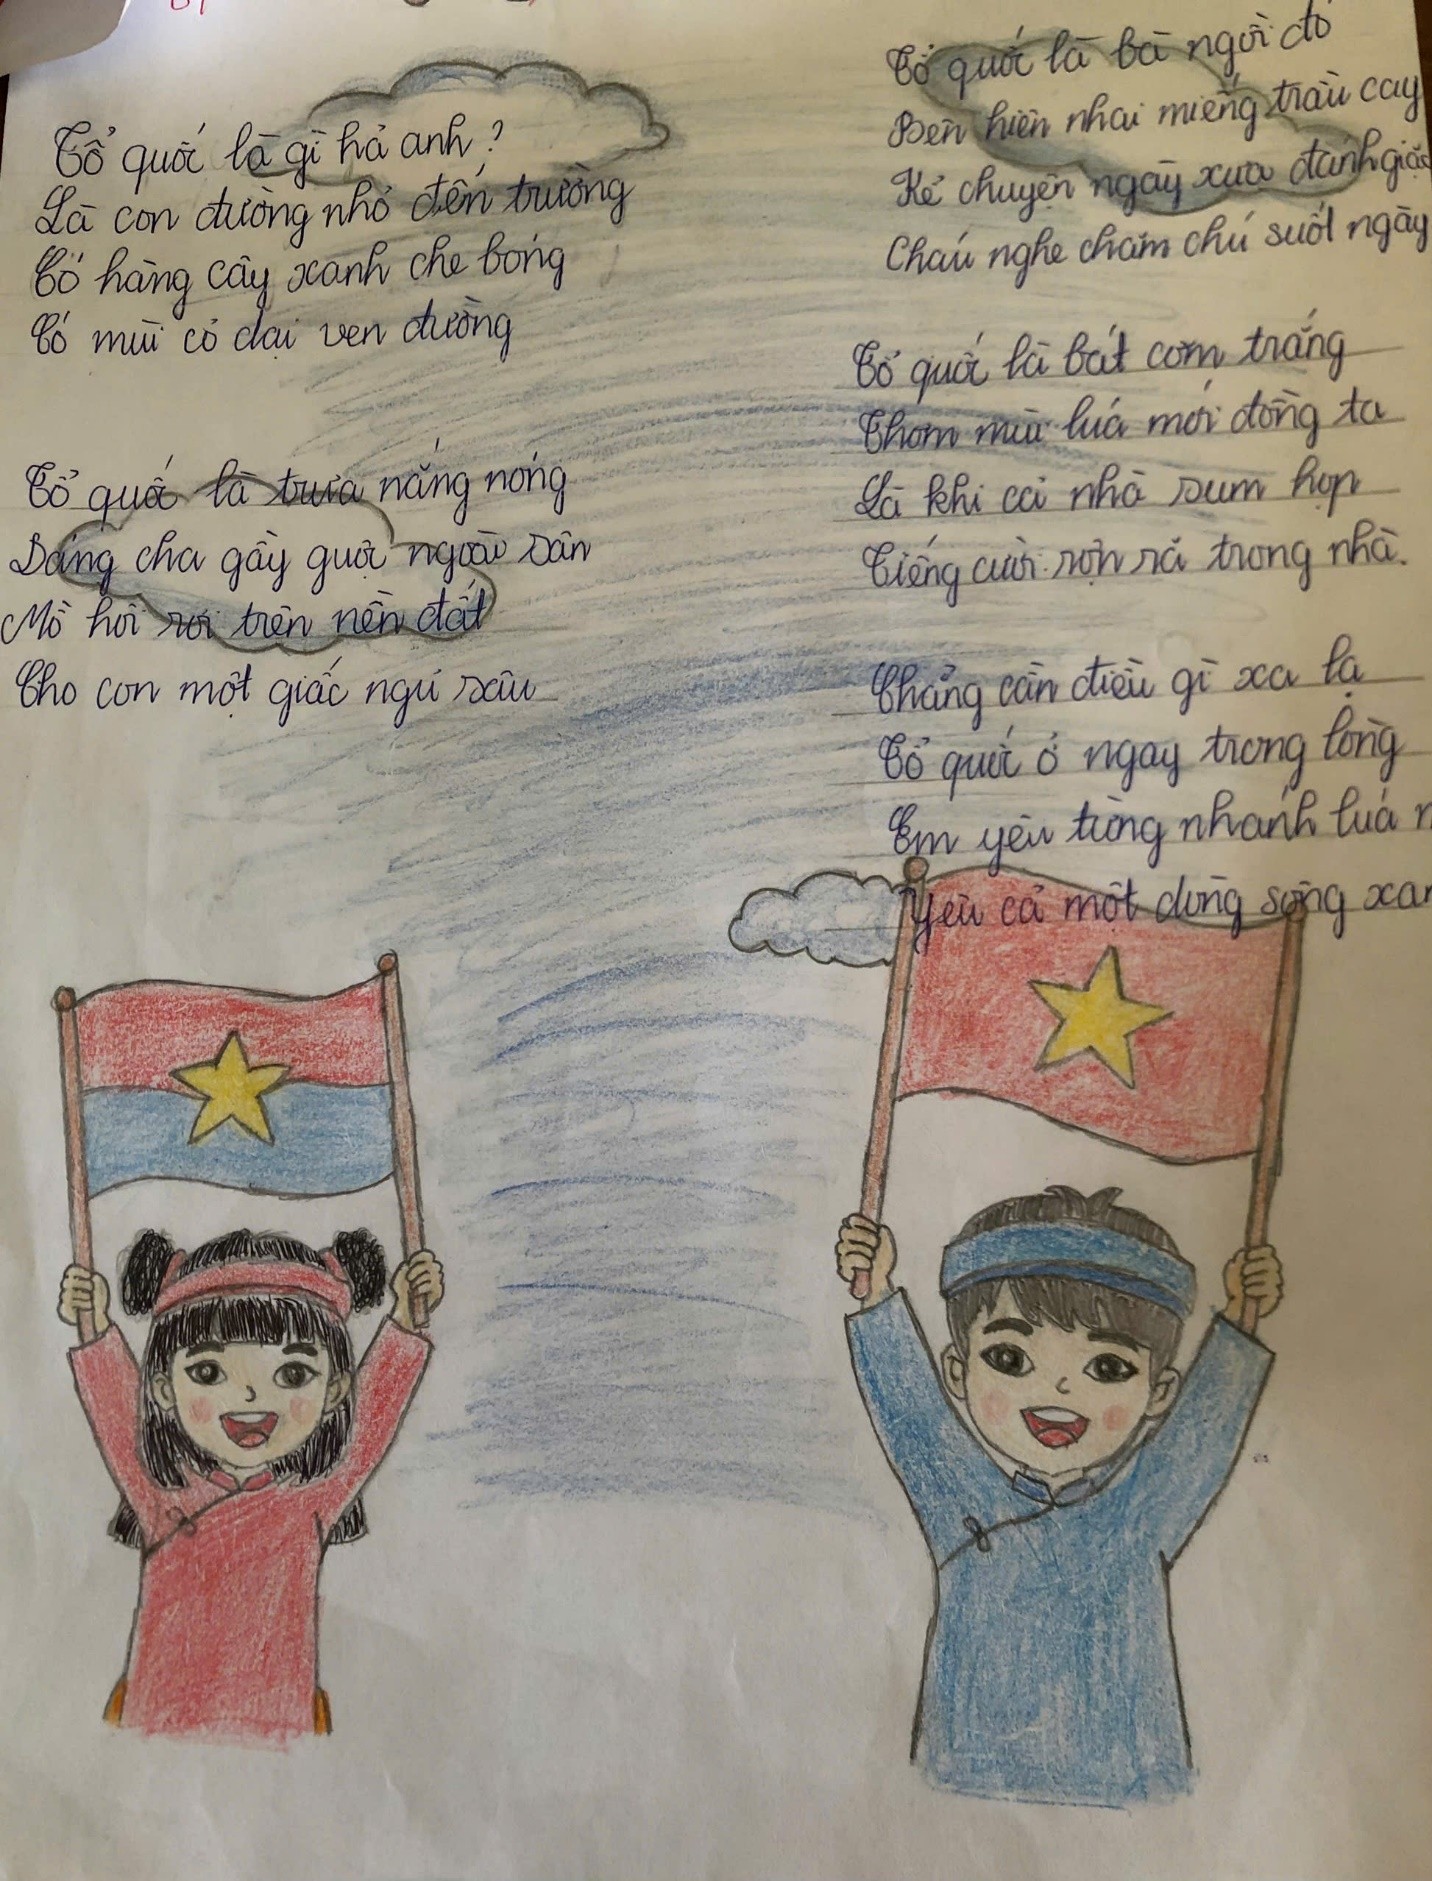 Tổ quốc là gì hả anh?
Là con đường nhỏ đến trường
Có hàng cây xanh che bóng
Có mùi cỏ dại ven đường
Tổ quốc là trưa nắng nóng
Dáng cha gầy guộc ngoài sân
Mồ hôi rơi trên nền đất
Cho con một giấc ngủ sâu
Tổ quốc là bà ngồi đó
Bên hiên nhai miếng trầu cay
Kể chuyện ngày xưa đánh giặc
Cháu nghe chăm chú suốt ngày
Tổ quốc là bát cơm trắng
Thơm mùi lúa mới đồng ta
Là khi cả nhà sum họp
Tiếng cười rộn rã trong nhà.
Chẳng cần điều gì xa lạ
Tổ quốc ở ngay trong lòng
Em yêu từng nhánh lúa
Yêu cả một dòng sông